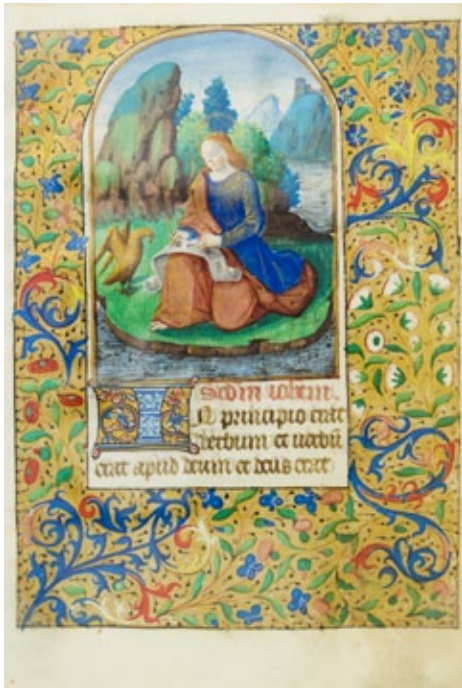 Scdm iohem.
IN principio erat
verbum et uerbū
erat apud deum et deus erat